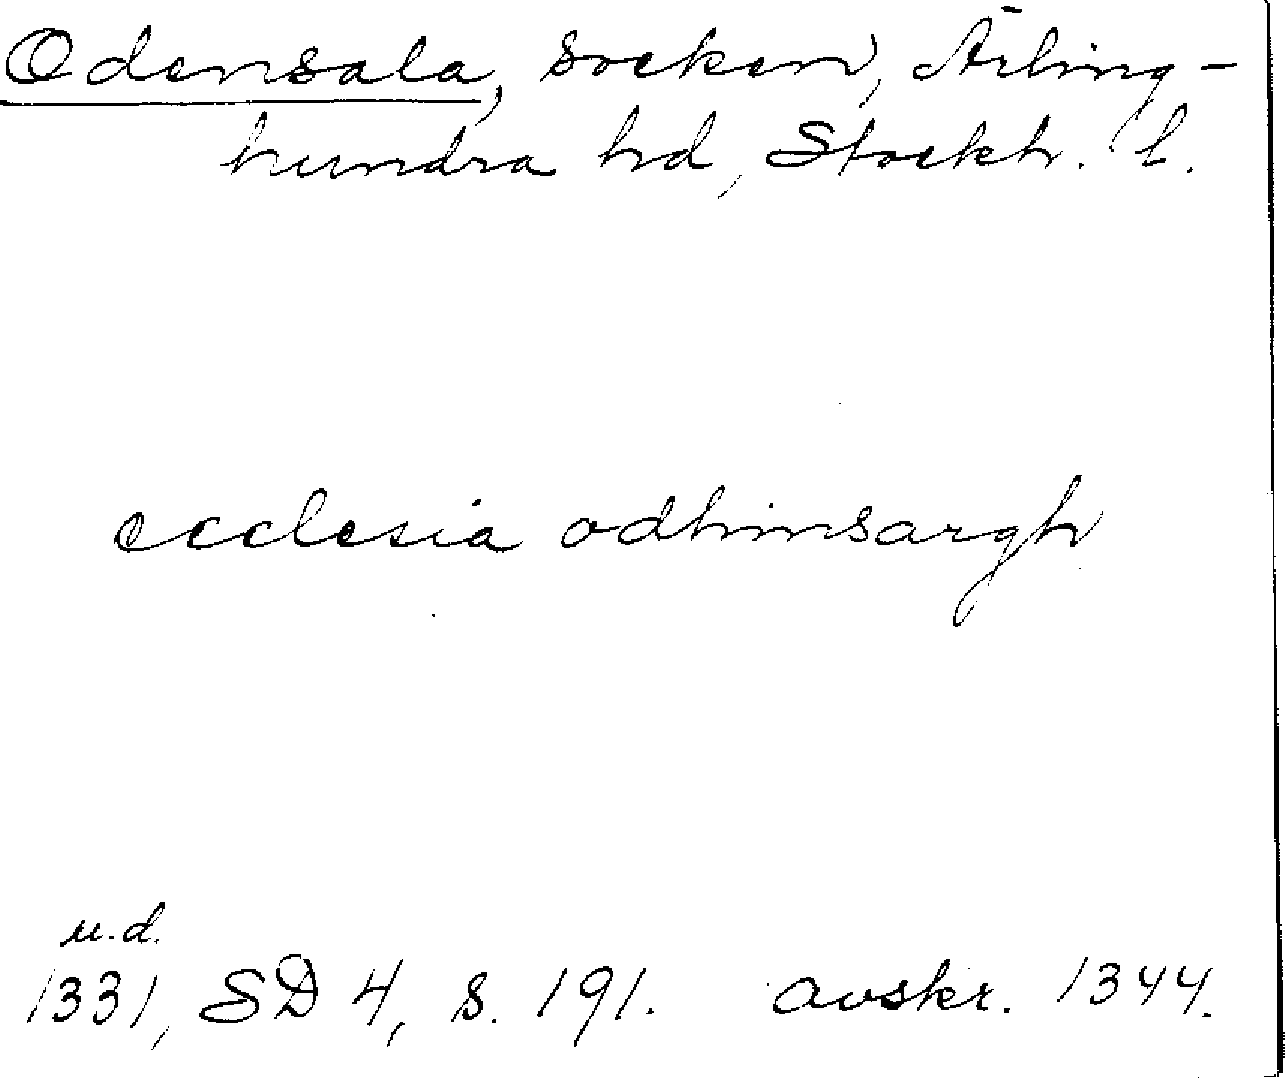 Odensala, socken, Ärling-
hundra hd, Stockh. l.
ecclesia odhinsargh
u.d.
1331, SD 4, s. 191. avskr. 1344.